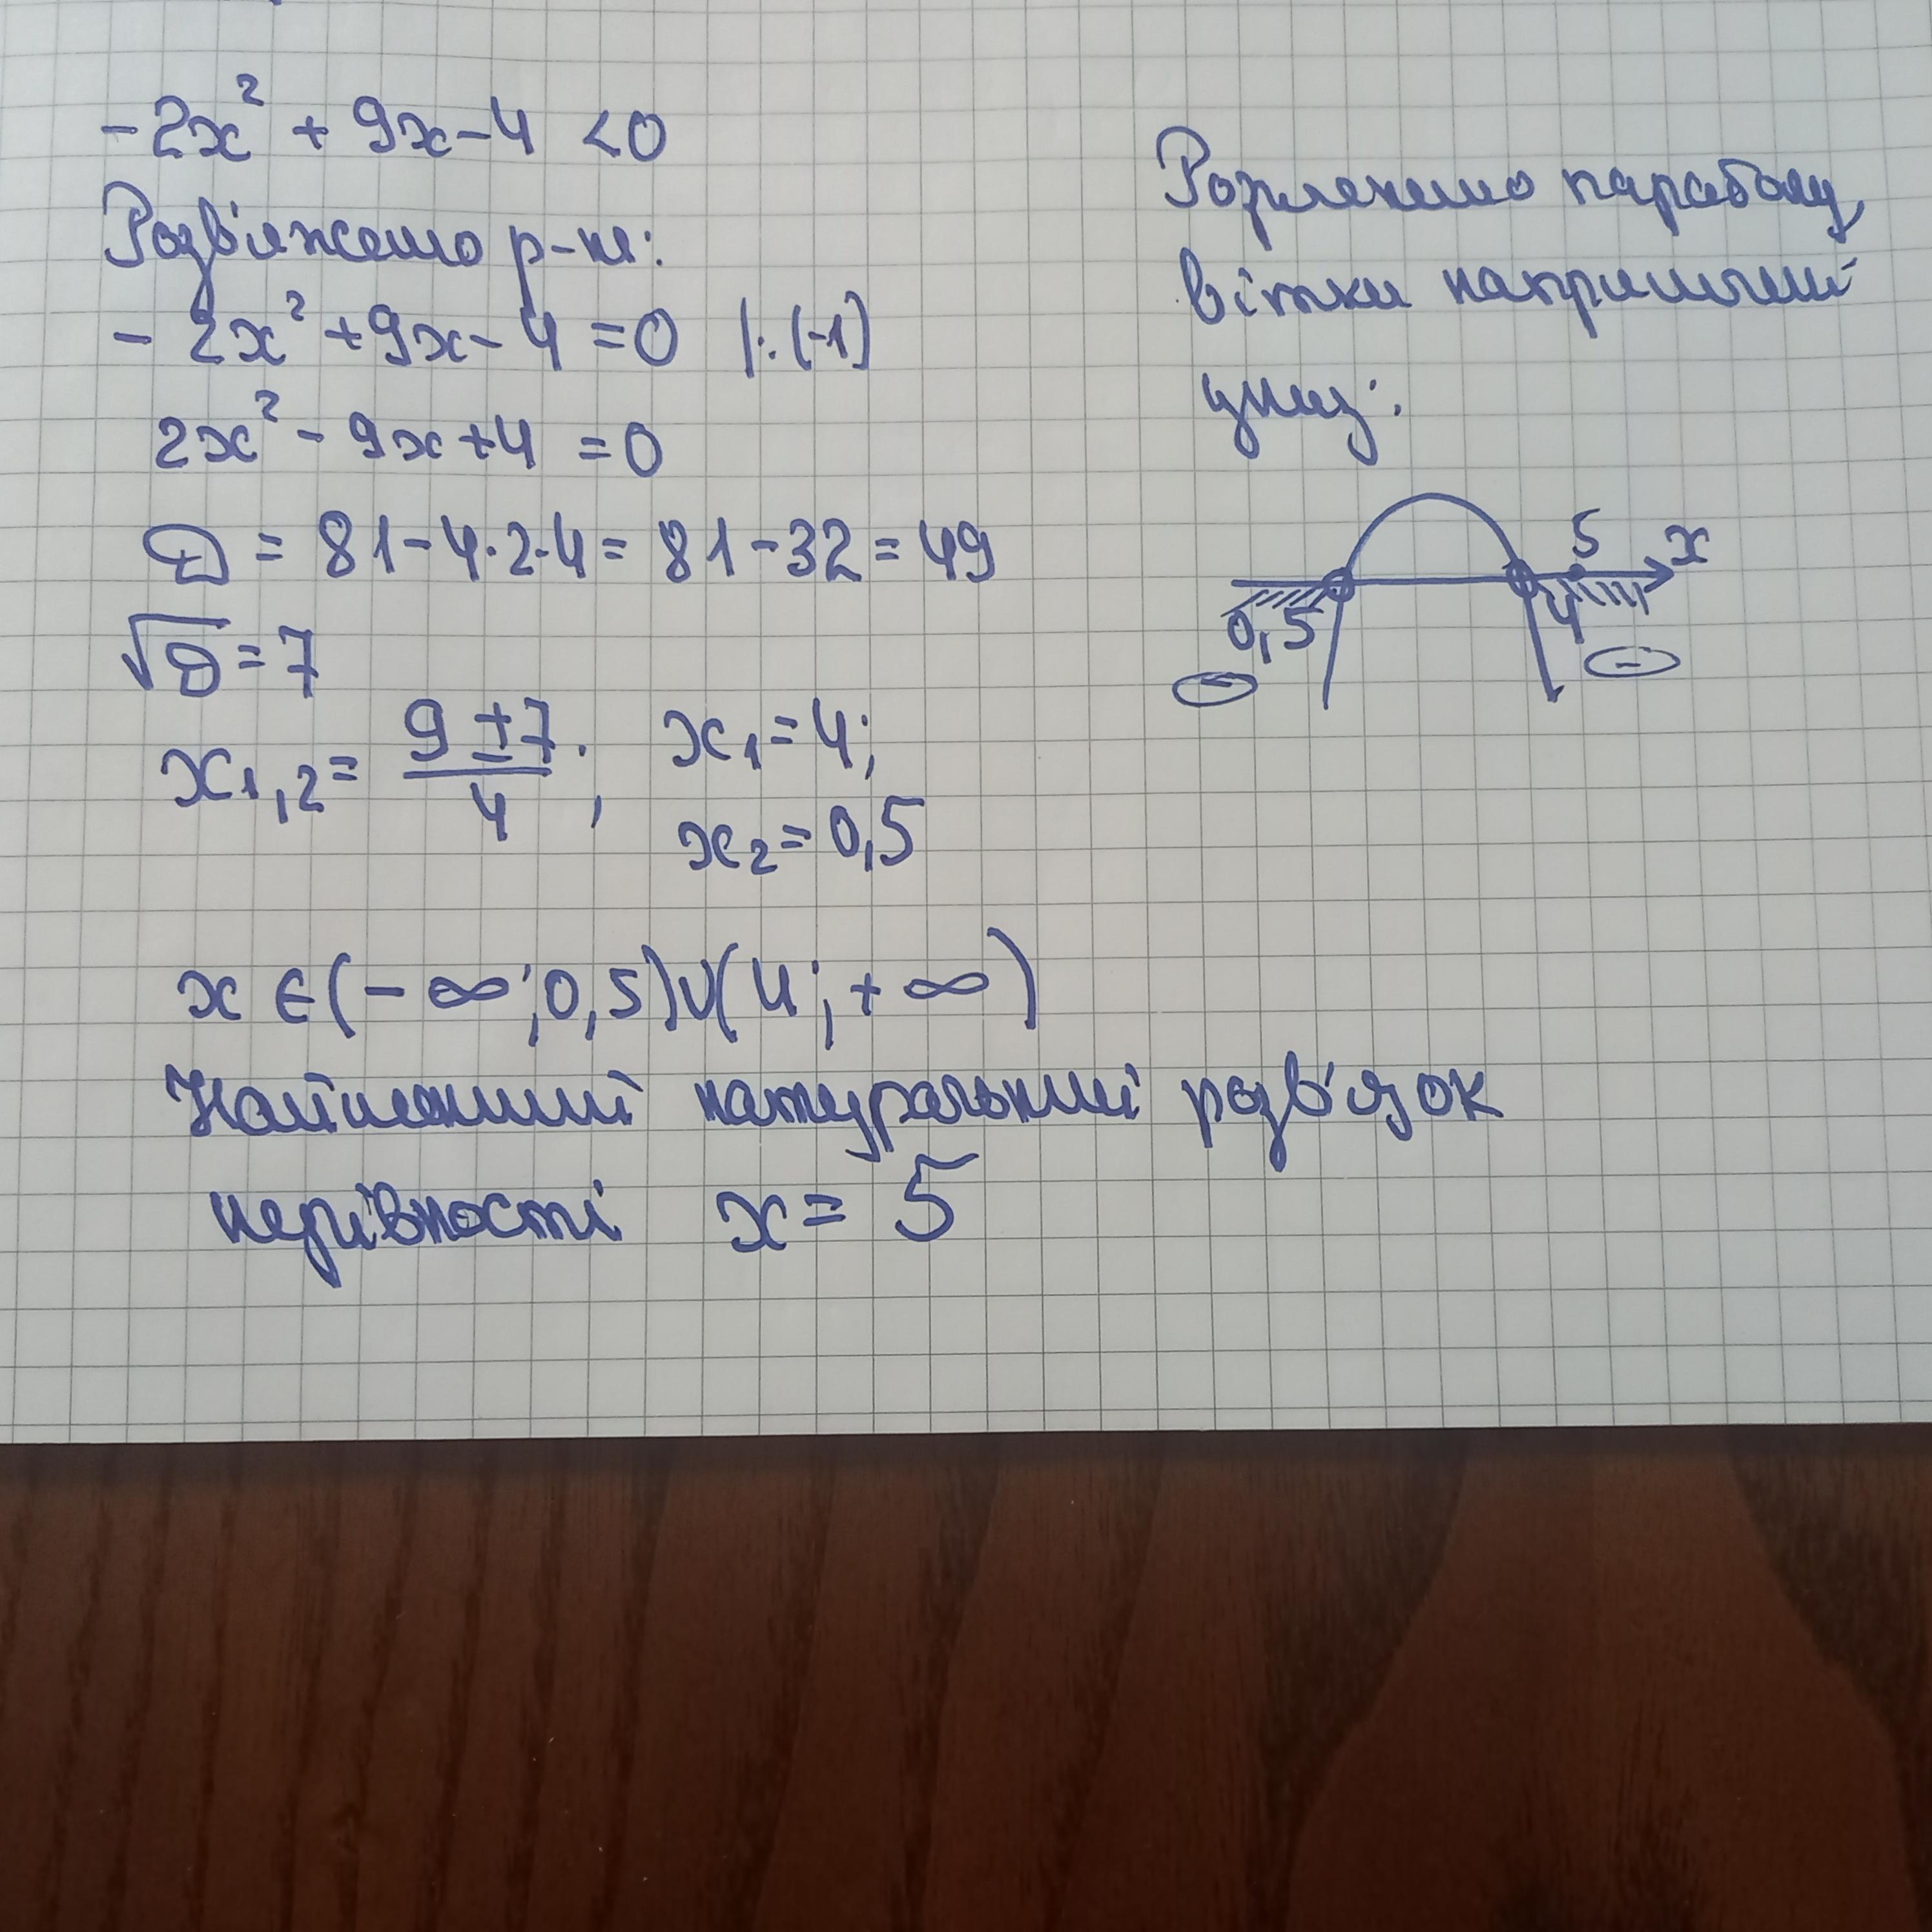 -2x² + 9x-4 <0
Розв'яжемо р-ня:
- 2x² +9x- 4 =0 |:(-1)
2x² - 9x+4 =0
D = 81-4·2·4= 81-32=49
√D=7
x₁,₂= (9±7)/4; x₁=4;
x₂=0,5
Розглянемо параболу,
вітки напрямлені
униз:
5 x
0,5 4
- -
x ∈(-∞;0,5)∪(4;+∞)
Найменший натуральний розв'язок
нерівності x= 5